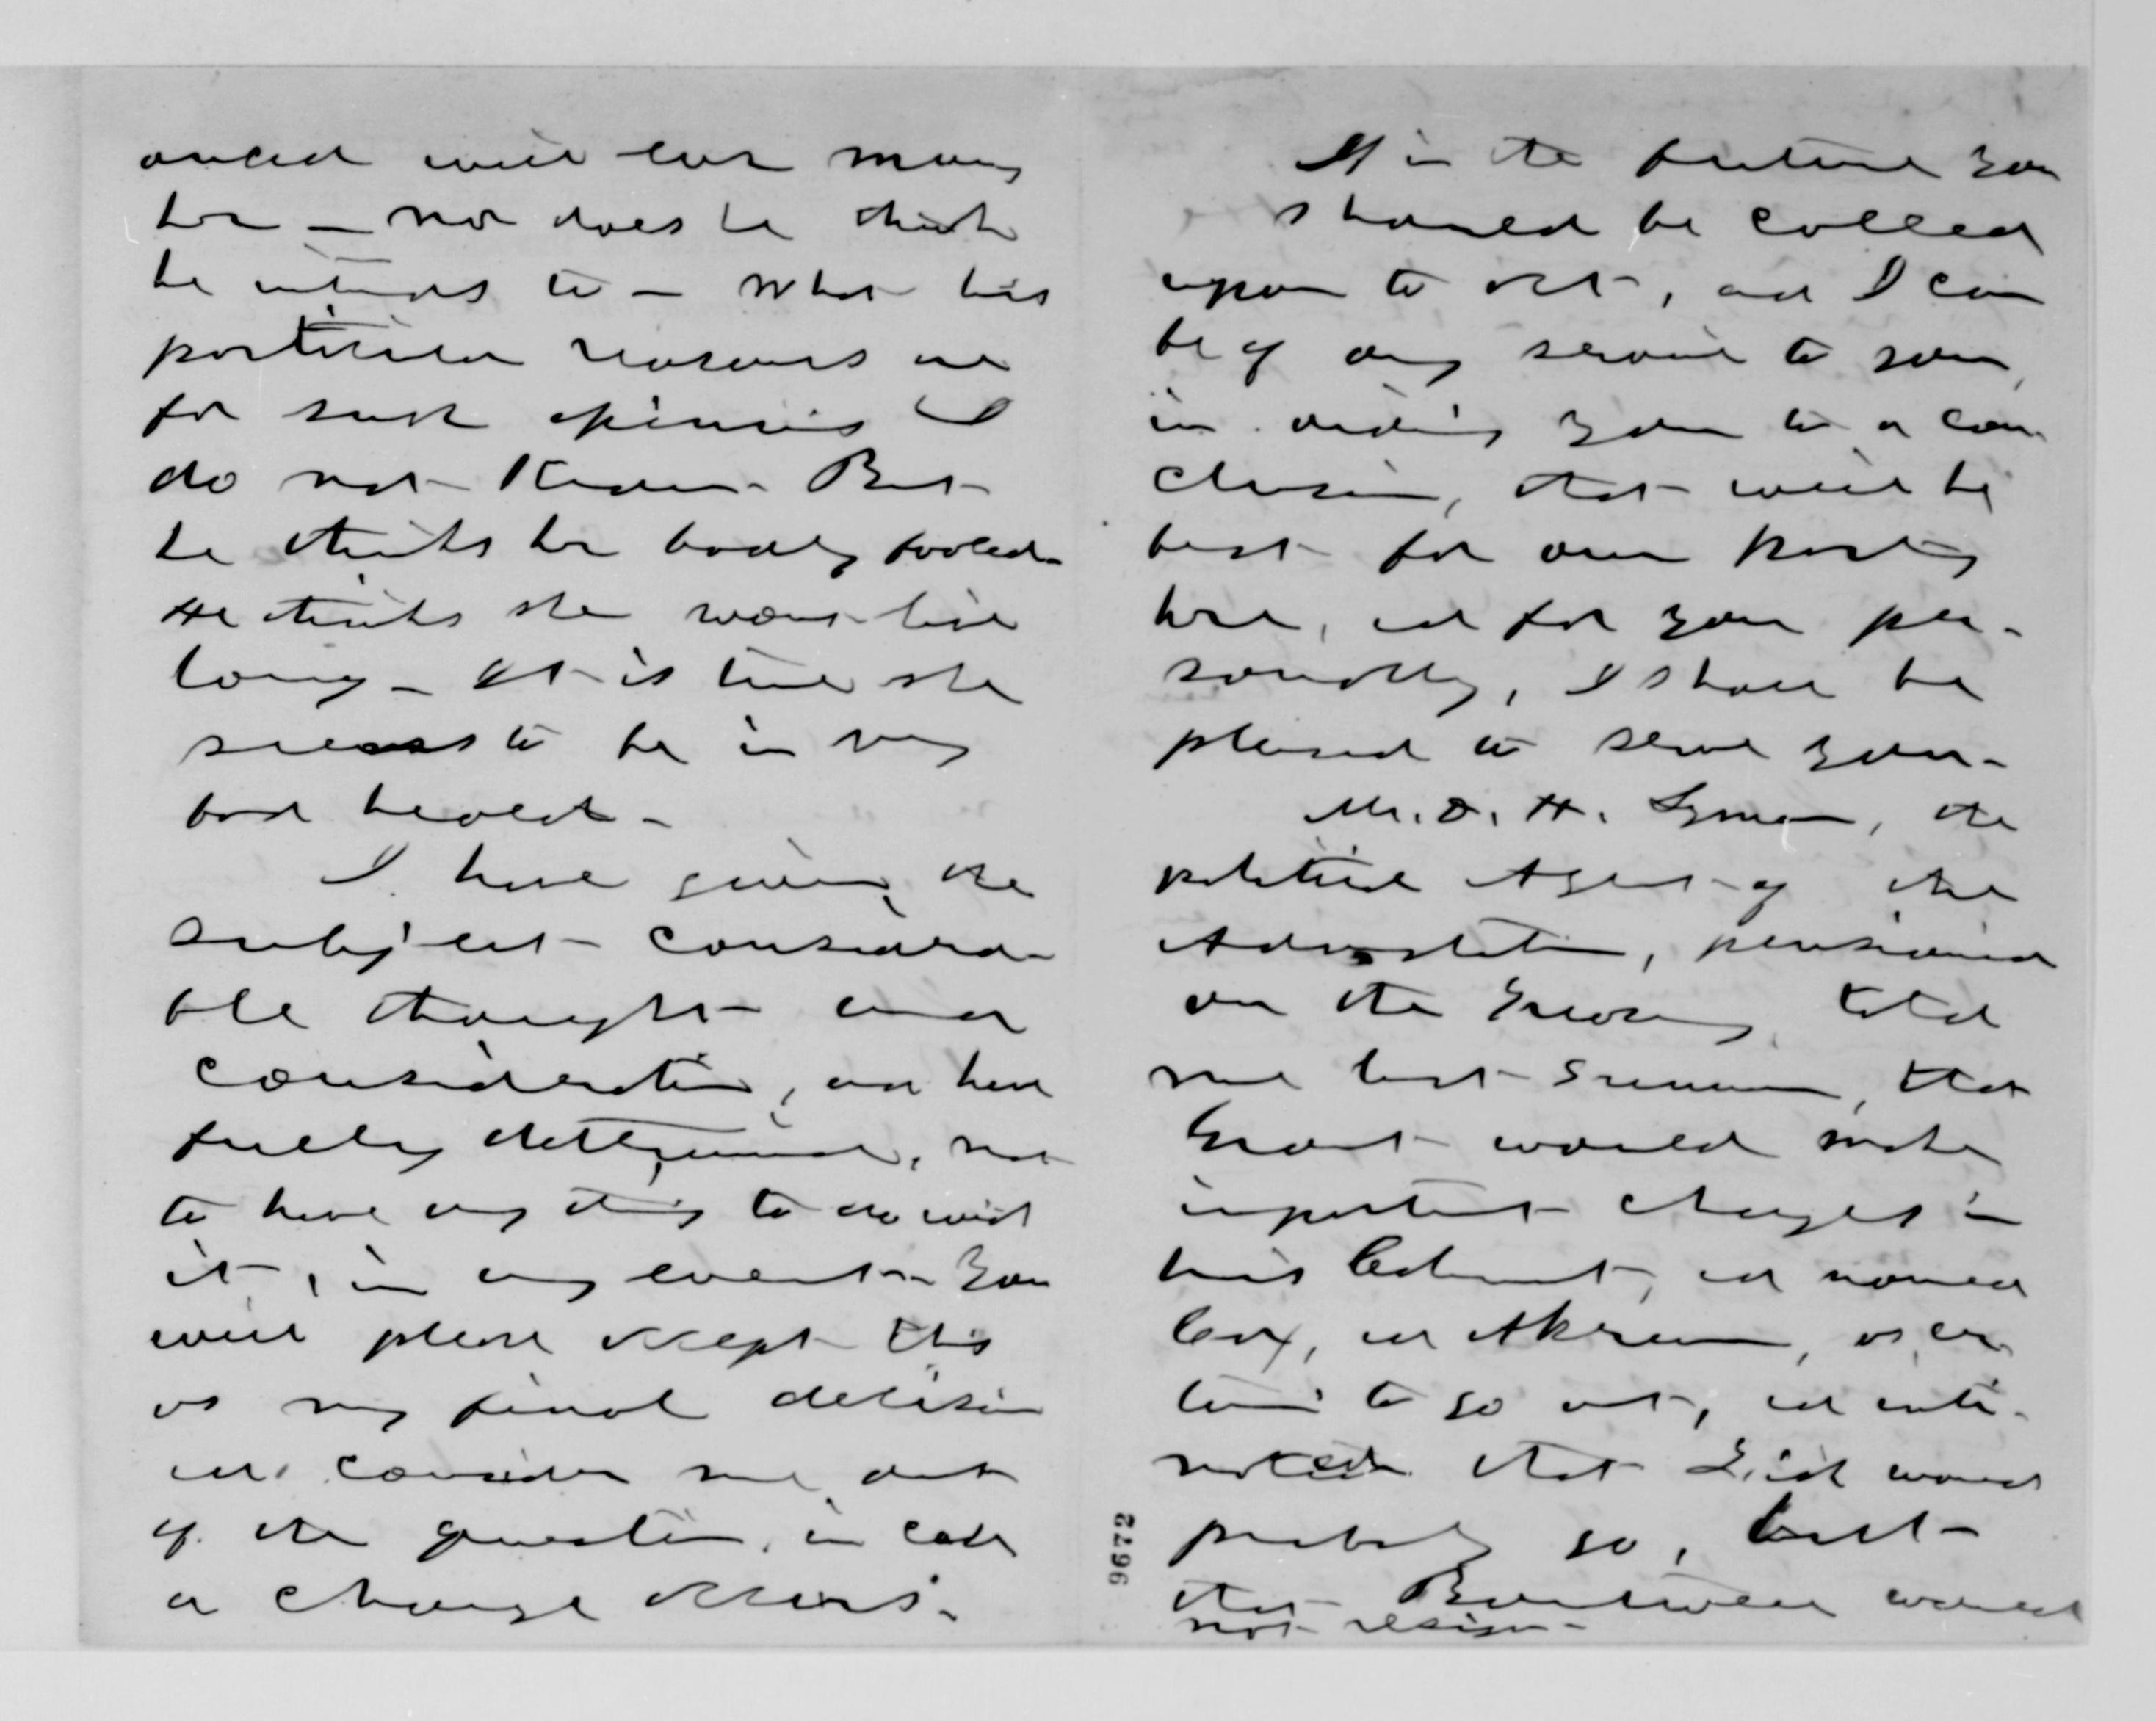 will ever marry
her — nor does he think
he intends to — What his
particular reasons are
for such opinions I
do not know. But
he thinks her badly fooled.
He thinks she wont live
long — It is true she
seems to be in very
bad health —
I have given the
subject considera-
ble thought and
consideration, and have
fully determined, not
to have any thing to do with
it, in any event — You
will please accept this
as my final decision
and consider me out
of the question, in case
a change occurs.
If in the future you
should be called
upon to act, and I can
be of any service to you,
in aiding you to a con-
clusion, that will be
best for our party
here, and for you per-
sonally, I shall be
pleased to serve you —
Mr. D. H. Lyman, the
political Agent of the
Administration, pensioned
on the Treasury, told
me last Summer, that
Grant would make
important changes in
his Cabinet, and named
Cox, and Akerman, as cer-
tain to go out, and inti-
mated that Fish would
probably go, but
that Boutwell would
not resign —
9672